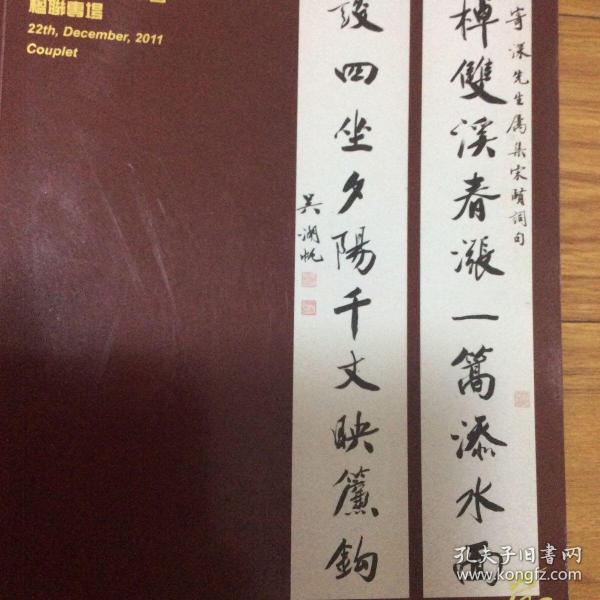 楹聯專場
22th, December, 2011
Couplet
寄深先生屬集宋賢詞句
棹雙溪春漲一篙添水面
四坐夕陽千丈映簾鉤
吳湖帆
孔夫子旧书网
www.kongfz.com